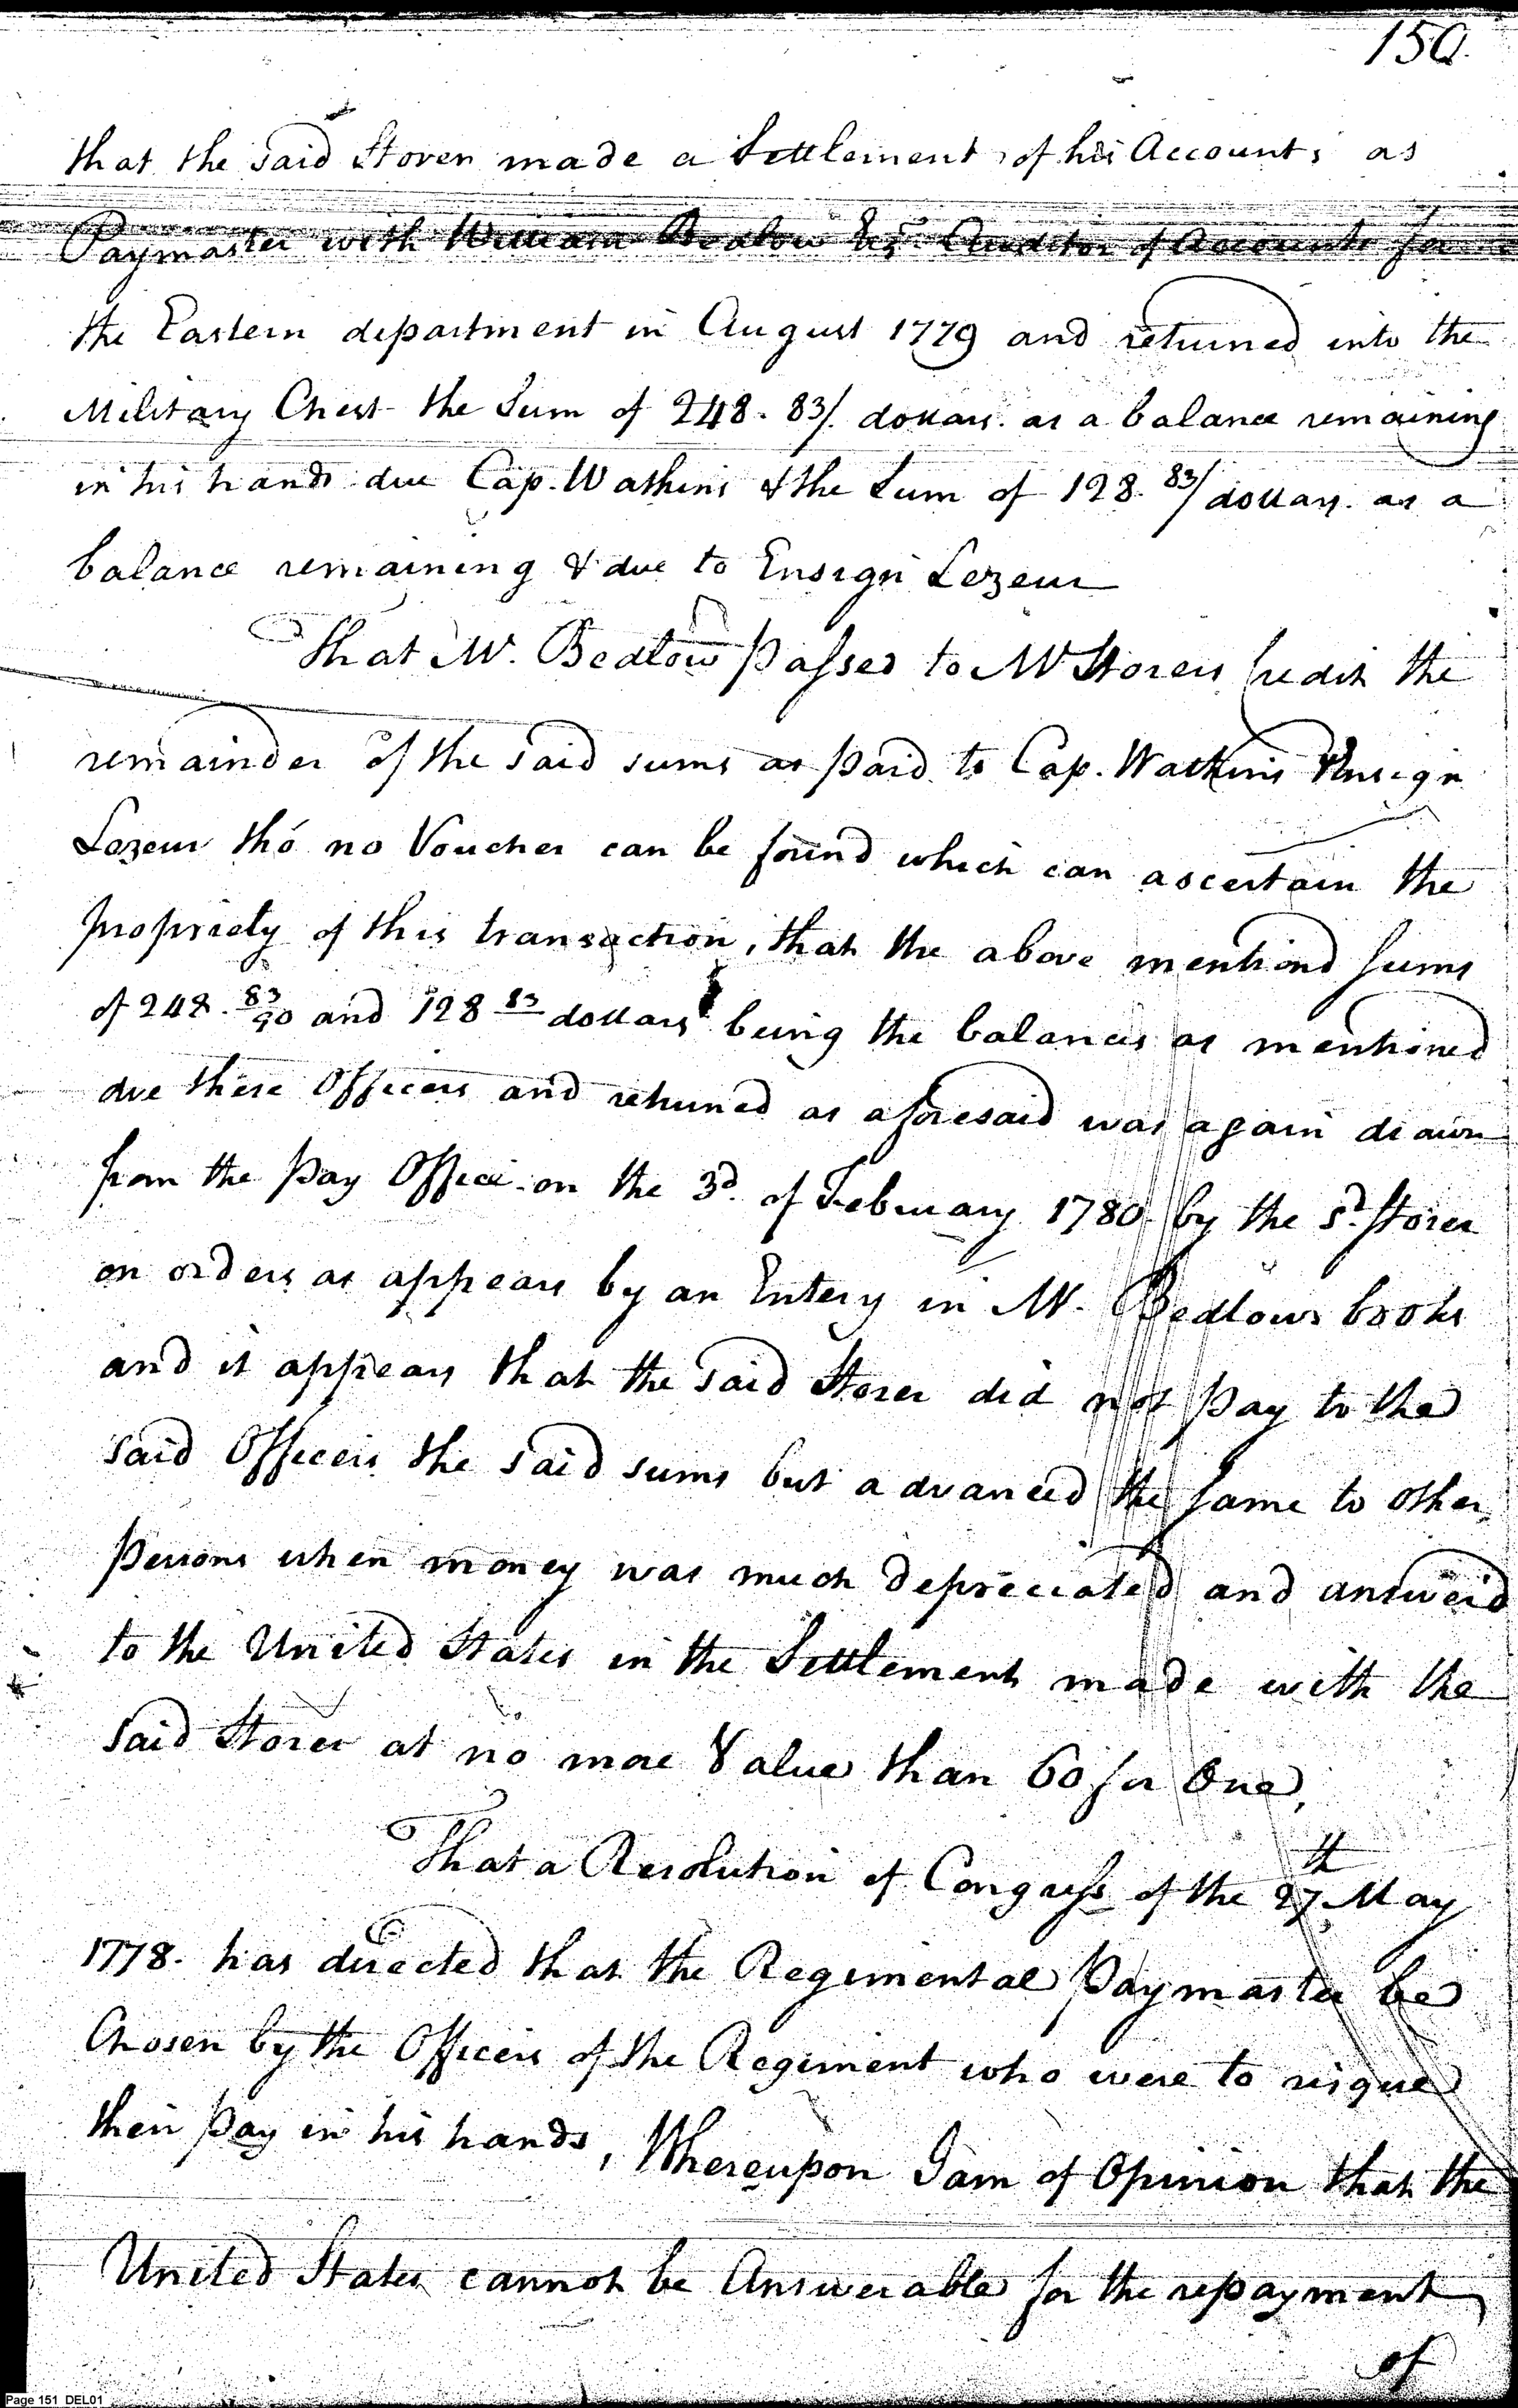 150.
that the said Storer made a Settlement of his Accounts as
Paymaster with William Bedlow Esqr. Auditor of Accounts for
the Eastern department in August 1779 and returned into the
Military Chest the Sum of 248. 83/. dollars. as a balance remaining
in his hands due Cap. Watkins & the Sum of 128. 83/ dollars. as a
balance remaining & due to Ensign Lezeur
That Mr. Bedlow passed to Mr Storers Credit the
remainder of the said sums as paid to Cap. Watkins Ensign
Lezeur thó no Voucher can be found which can ascertain the
propriety of this transaction, that the above mentiond sums
of 248. 83/90 and 128 83 dollars being the balances as mentioned
due these Officers and returned as aforesaid was again drawn
from the Pay Office on the 3d. of February 1780. by the sd. Storer
on orders as appears by an Entery in Mr. Bedlows books
and it appears that the said Storer did not pay to the
said Officers the said sums but advanced the same to other
persons when money was much depreciated and answerd
to the United States in the Settlement made with the
said Storer at no more Value than 60 for One,
That a Resolution of Congress of the 27th May
1778. has directed that the Regimental Paymaster be
Chosen by the Officers of the Regiment who were to risque
their pay in his hands, Whereupon I am of Opinion that the
United States cannot be Answerable for the repayment
of
Page 151 DEL01